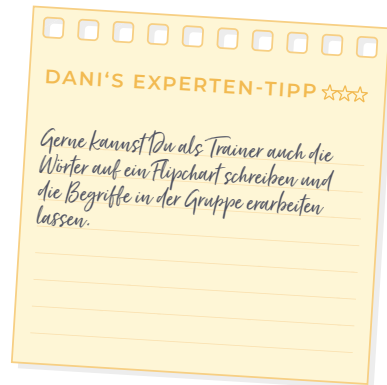 DANI'S EXPERTEN-TIPP
Gerne kannst Du als Trainer auch die
Wörter auf ein Flipchart schreiben und
die Begriffe in der Gruppe erarbeiten
lassen.